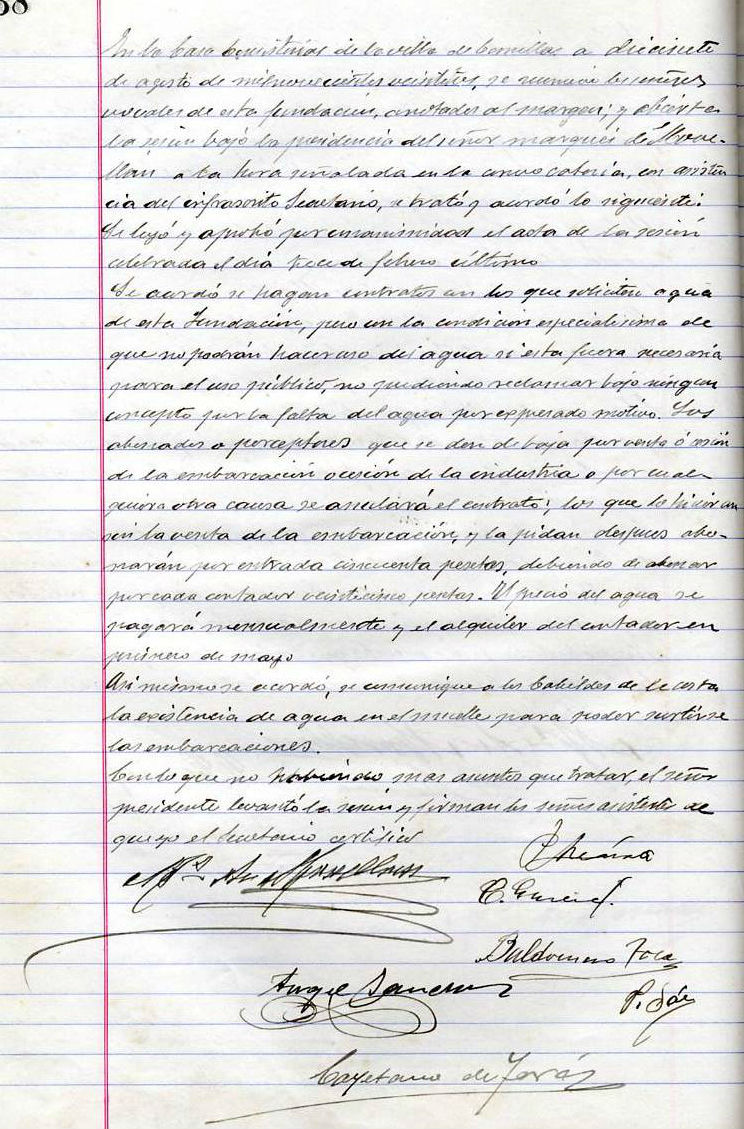 58
En la Casa Consistorial de la villa de Comillas a diecisiete
de agosto de mil novecientos veintitres, se reunieron los señores
vocales de esta fundacion, anotados al margen; y abierta
la sesión bajo la presidencia del señor marqués de Move-
llan a la hora señalada en la convocatoria, con asisten
cia del infrascrito Secretario, se trató y acordó lo siguiente:
Se leyó y aprobó por unanimidad el acta de la sesión
celebrada el día trece de febrero último
Se acordó se hagan contratos con los que soliciten agua
de esta Fundación, pero con la condición especialisima de
que no podrán hacer uso del agua si esta fuera necesaria
para el uso público, no pudiendo reclamar bajo ningun
concepto por la falta del agua por expresado motivo. Los
abonados o perceptores que se den de baja por venta ó cesión
de la embarcación o cesión de la industria o por cual-
quiera otra causa se anulará el contrato; los que lo hicieran
sin la venta de la embarcación, y la pidan despues abo-
narán por entrada cincuenta pesetas, debiendo de abonar
por cada contador veinticinco pesetas. El precio del agua se
pagará mensualmente y el alquiler del contador en
primero de mayo
Asi mismo se acordó, se comunique a los Cabildos de la costa
la existencia de agua en el muelle para poder surtirse
las embarcaciones.
Con lo que no habiendo mas asuntos que tratar, el señor
presidente levantó la sesión y firman los señores asistentes de
que yo el Secretario certifico
Movellan
Baldomero Toca
Angel Sanchez
P. Díaz
Cayetano de